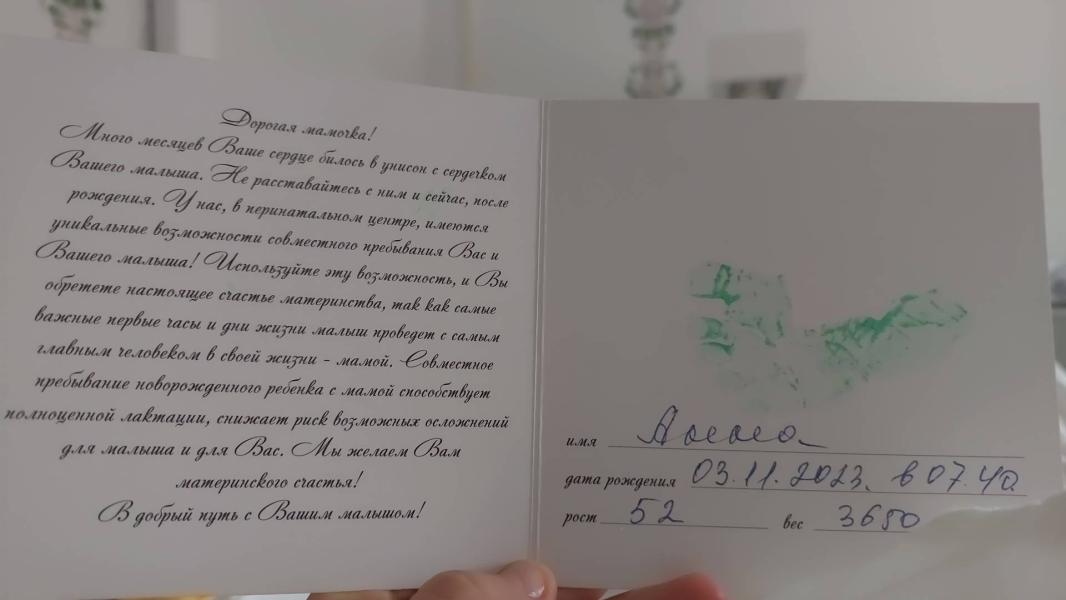 Дорогая мамочка!
Много месяцев Ваше сердце билось в унисон с сердечком
Вашего малыша. Не расставайтесь с ним и сейчас, после
рождения. У нас, в перинатальном центре, имеются
уникальные возможности совместного пребывания Вас и
Вашего малыша! Используйте эту возможность, и Вы
обретете настоящее счастье материнства, так как самые
важные первые часы и дни жизни малыш проведет с самым
главным человеком в своей жизни - мамой. Совместное
пребывание новорожденного ребенка с мамой способствует
полноценной лактации, снижает риск возможных осложнений
для малыша и для Вас. Мы желаем Вам
материнского счастья!
В добрый путь с Вашим малышом!
имя
дата рождения 03.11.2023. в 07.40.
рост 52 вес 3650